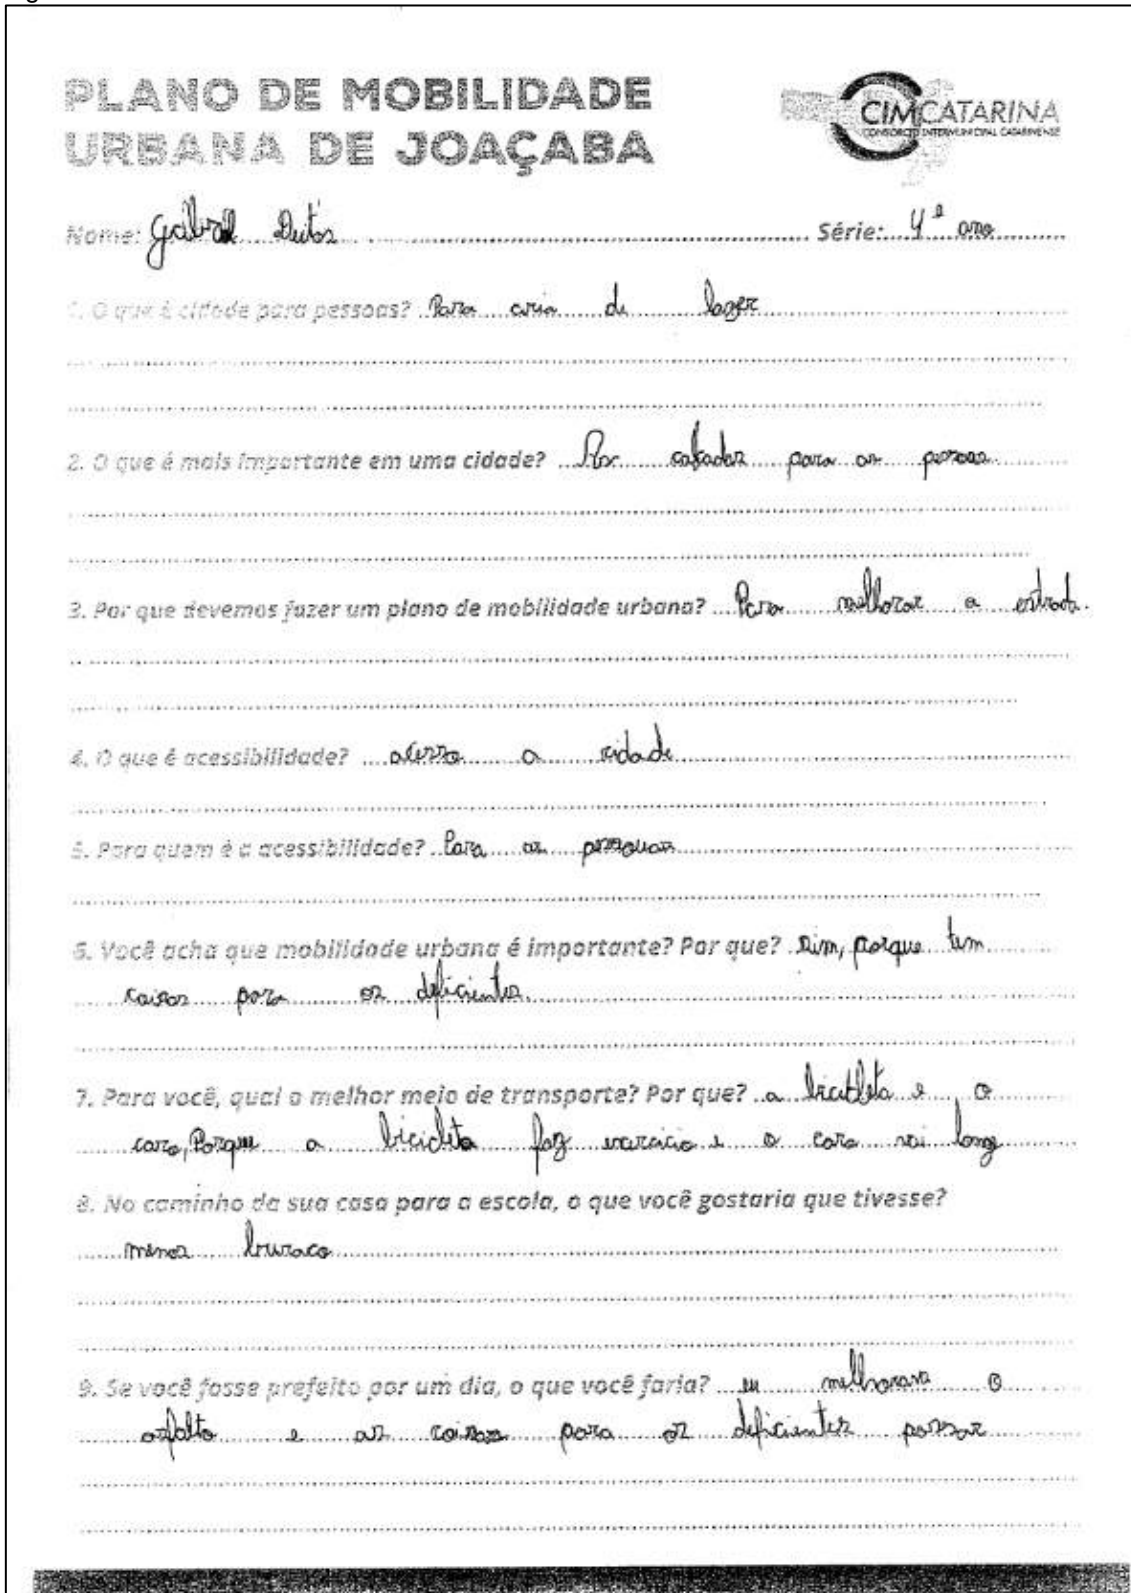 PLANO DE MOBILIDADE
URBANA DE JOAÇABA
CIMCATARINA
CONSÓRCIO INTERMUNICIPAL CATARINENSE
Nome: Gabriel Série: 4º ano
1. O que é cidade para pessoas? Para aria de lazer
2. O que é mais importante em uma cidade? As calsadas para as pessoas
3. Por que devemos fazer um plano de mobilidade urbana? Para melhorar a estrada.
4. O que é acessibilidade? acesso a cidade
5. Para quem é a acessibilidade? Para as pessouas
6. Você acha que mobilidade urbana é importante? Por que? sim, porque tem
coisas para os deficientes.
7. Para você, qual o melhor meio de transporte? Por que? a bicicleta e o
caro, Porque a bicicleta faz exercicio e o caro vai long
8. No caminho da sua casa para a escola, o que você gostaria que tivesse?
menos buraco
9. Se você fosse prefeito por um dia, o que você faria? eu melhorava o
asfalto e as coisas para os deficientes passar